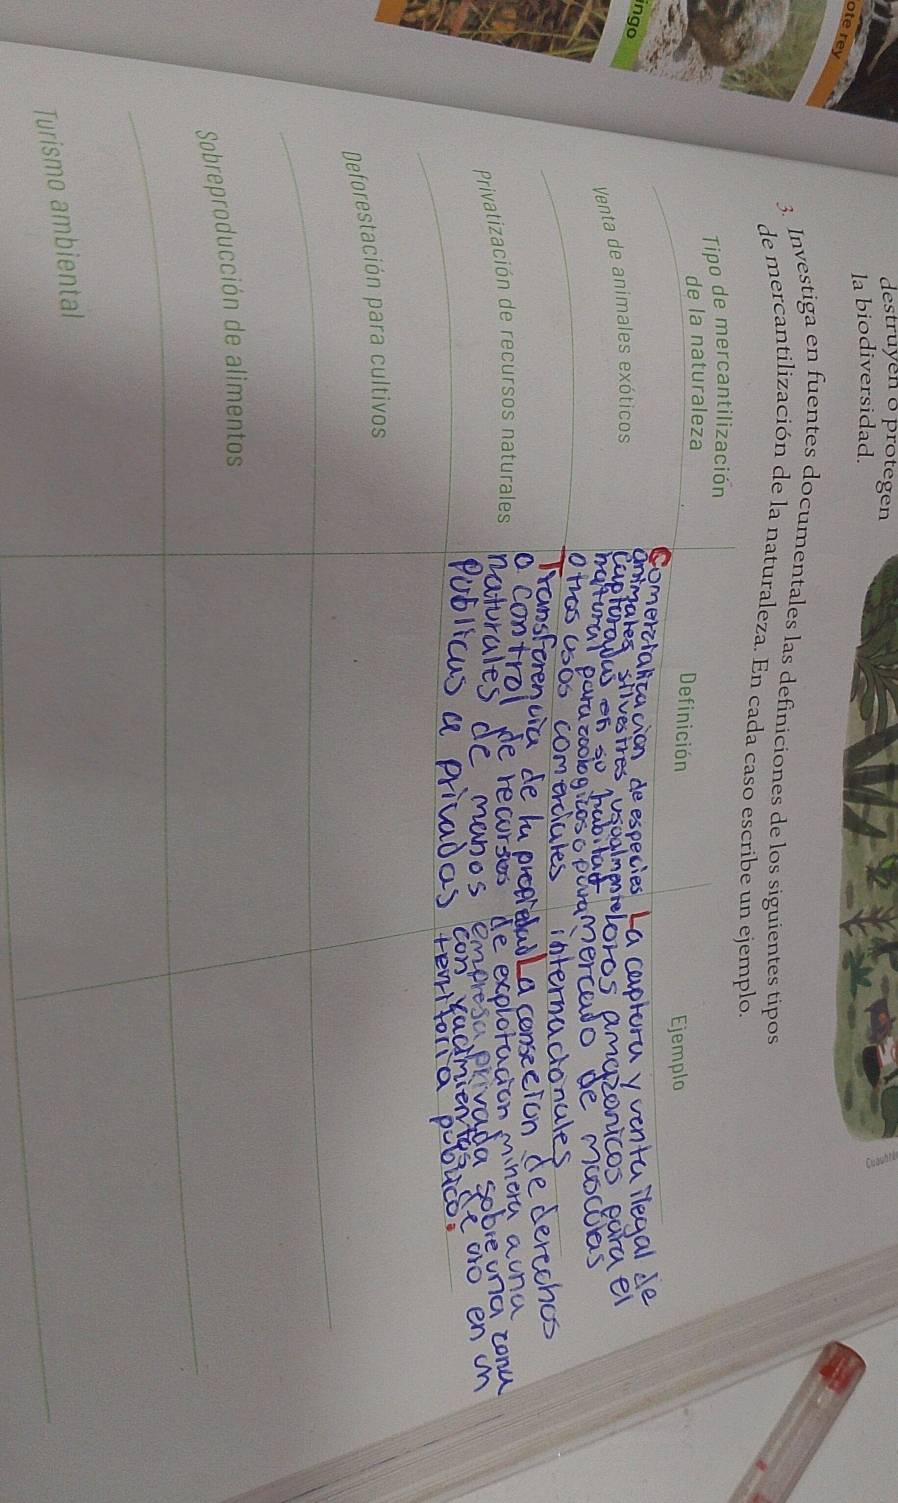 ote rey
ingo
destruyen o protegen
la biodiversidad.
Cuauhté
3. Investiga en fuentes documentales las definiciones de los siguientes tipos
de mercantilización de la naturaleza. En cada caso escribe un ejemplo.
Tipo de mercantilización
de la naturaleza
Definición
Ejemplo
Venta de animales exóticos
Comercialización de especies
animales silvestres usualmente
capturadas en su habitad
natural para zoologicos o para
otros usos comerciales
La captura y venta ilegal de
loros amazonicos para el
mercado de mascotas
internacionales
Privatización de recursos naturales
Transferencia de la propiedad
o control de recursos
naturales de manos
publicas a privadas
La conseción de derechos
de explotación minera a una
empresa privada sobre una zona
con yacimientos de oro en un
territorio publico.
Deforestación para cultivos
Sobreproducción de alimentos
Turismo ambiental